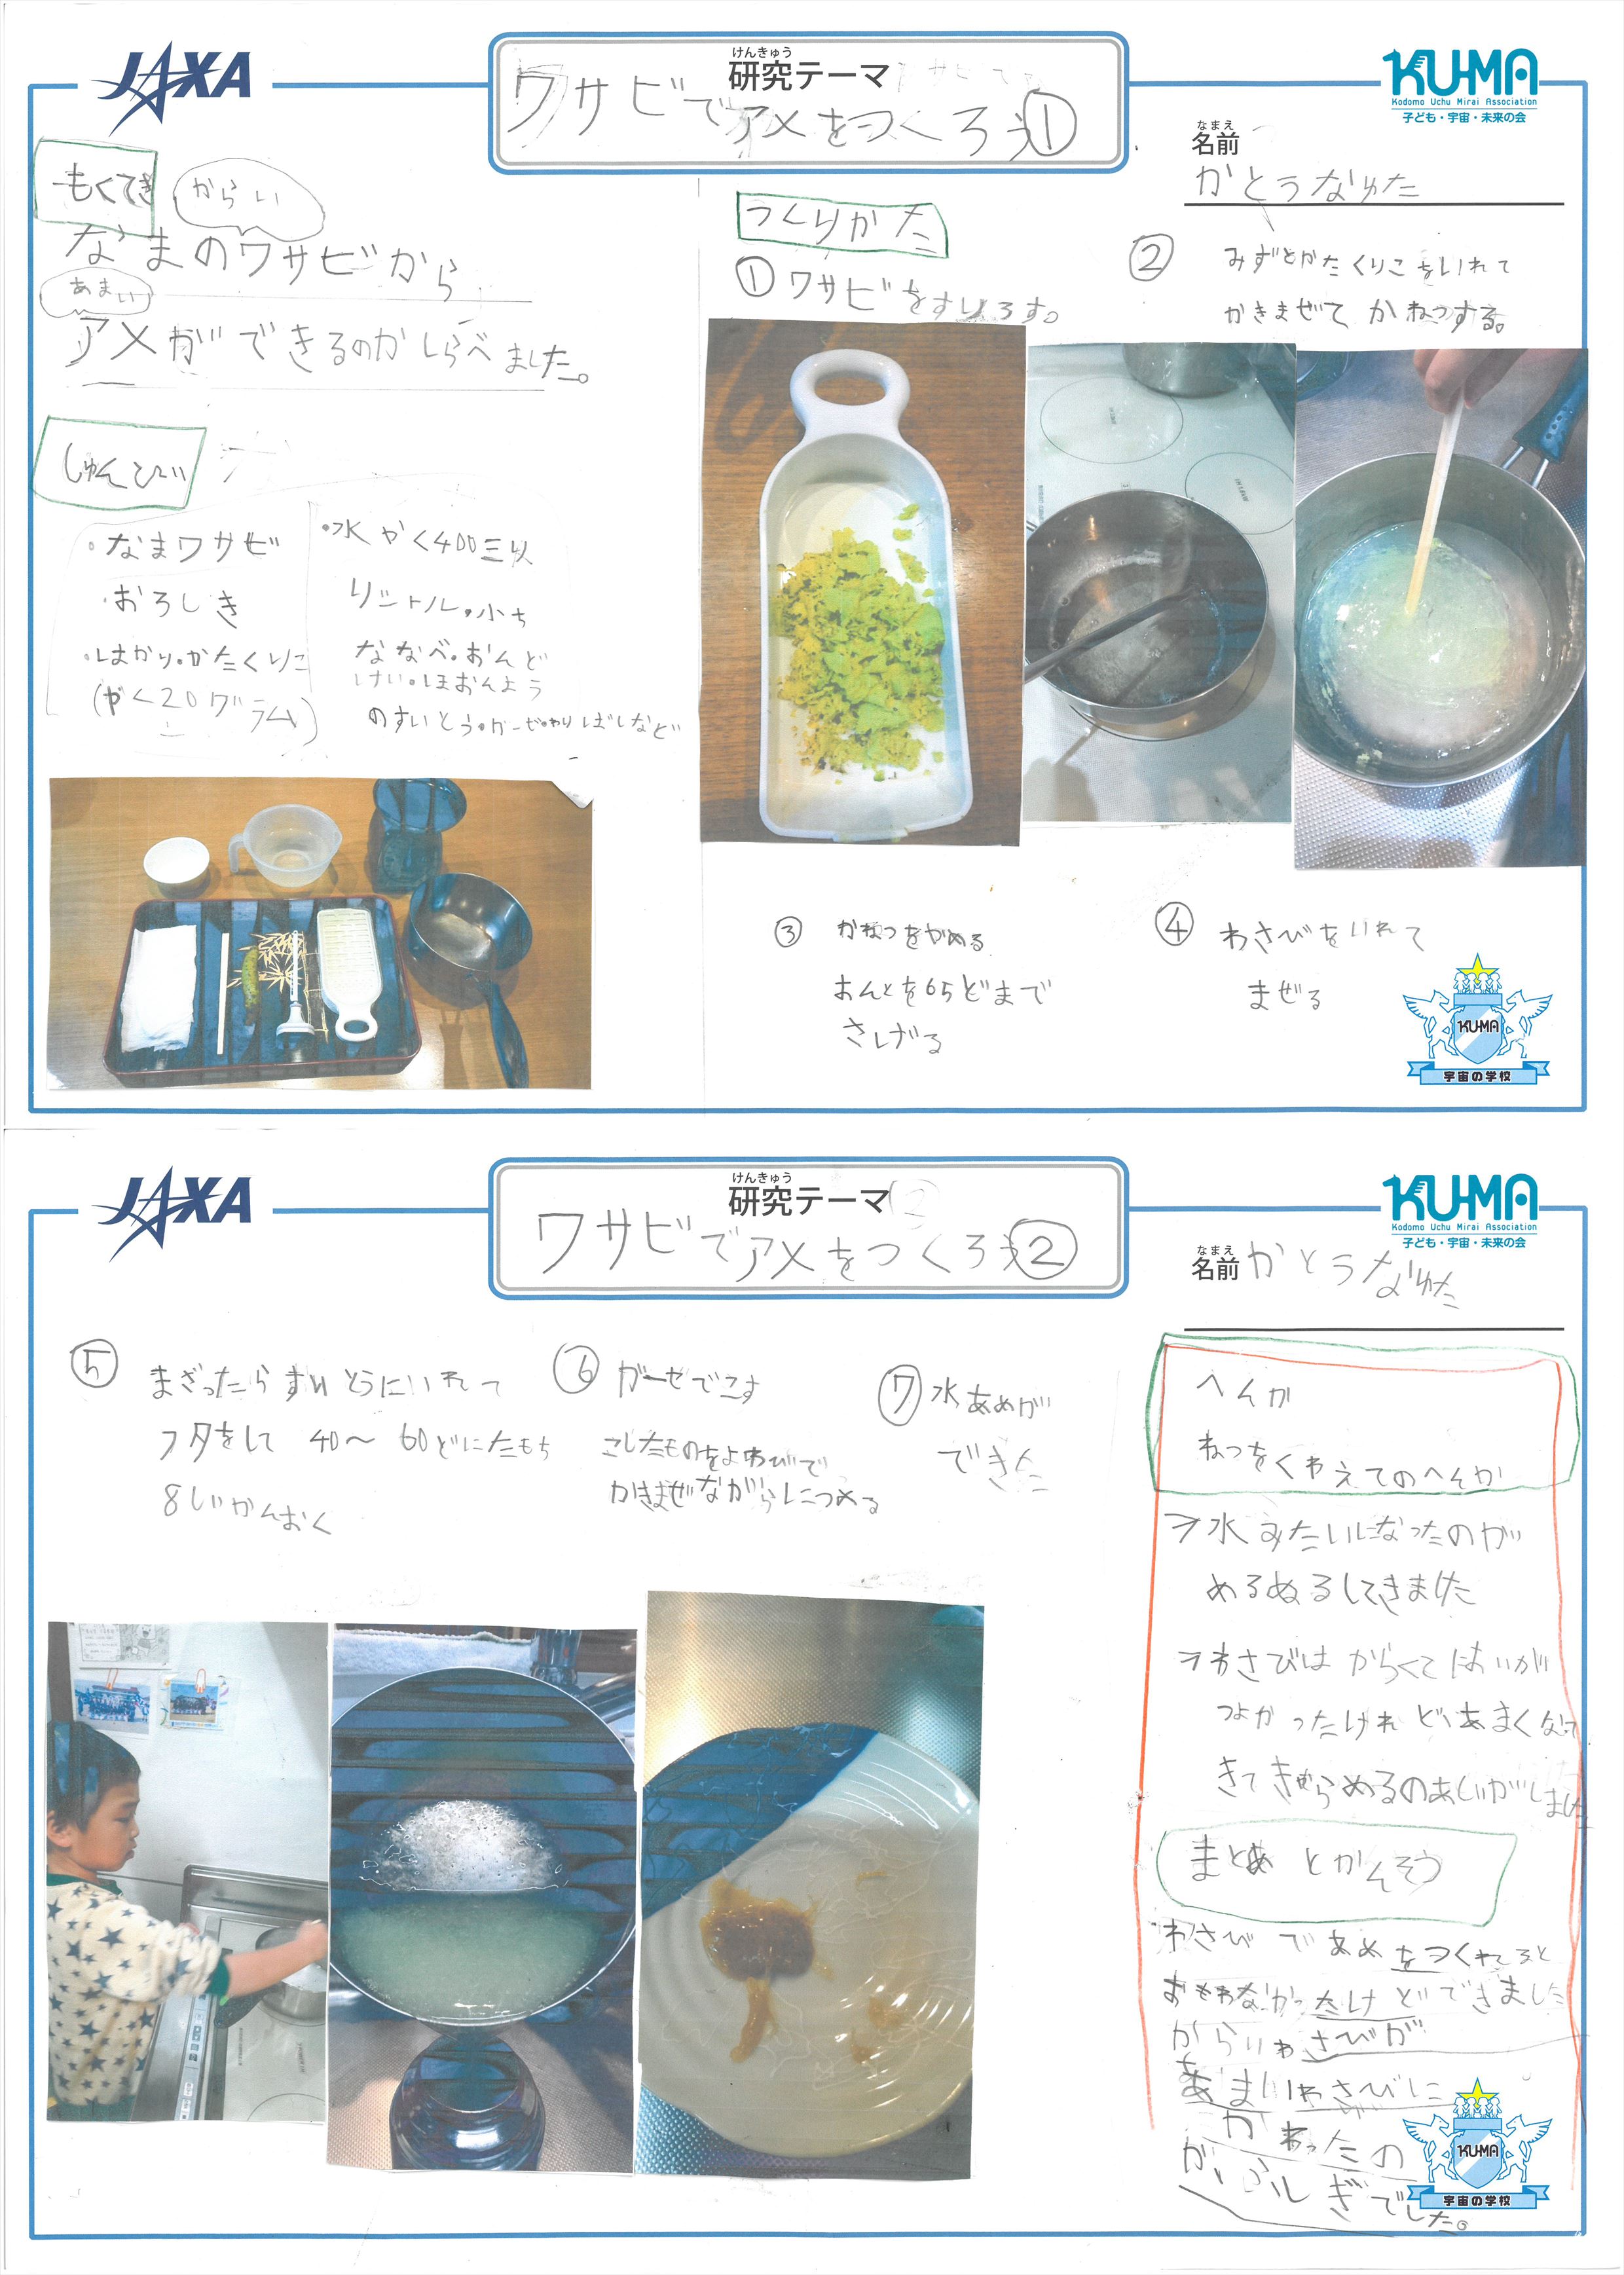 JAXA
けんきゅう
研究テーマ
ワサビでアメをつくろう①
KU-MA
Kodomo Uchu Mirai Association
子ども・宇宙・未来の会
なまえ
名前
かとうなゆた
もくてき
からい
なまのワサビから
あまい
アメができるのかしらべました。
じゅんび
・なまワサビ
・おろしき
・はかり・かたくりこ
(やく20グラム)
・水やく400ミリ
リットル・小さ
ななべ・おんど
けい・ほおんよう
のすいとう・ガーゼ・わりばしなど
つくりかた
①ワサビをすりおろす。
② みずとかたくりこをいれて
かきまぜて かねつする。
③ かねつをやめる
おんとを65どまで
さげる
④ わさびをいれて
まぜる
KU-MA
宇宙の学校
JAXA
けんきゅう
研究テーマ
ワサビでアメをつくろう②
KU-MA
Kodomo Uchu Mirai Association
子ども・宇宙・未来の会
なまえ
名前 かとうなゆた
⑤ まざったらすいとうにいれて
フタをして 40〜60どにたもち
8じかんおく
⑥ ガーゼでこす
こしたものをよわびで
かきまぜながらにつめる
⑦ 水あめが
できた
へんか
ねつをくわえてのへんか
→水みたいになったのが
ぬるぬるしてきました
→わさびはからくてにおいが
つよかったけれどあまくなって
きてきゃらめるのあじがしました
まとめとかんそう
わさびであめをつくれると
おもわなかったけどできました
からいわさびが
あまいわさびに
かわったの
がふしぎでした。
KU-MA
宇宙の学校